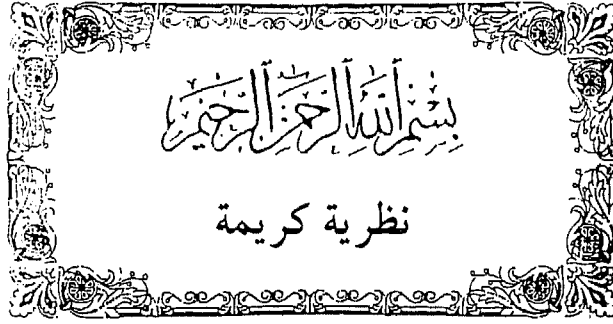 بِسْمِ ٱللَّهِ ٱلرَّحْمَٰنِ ٱلرَّحِيمِ
نظرية كريمة